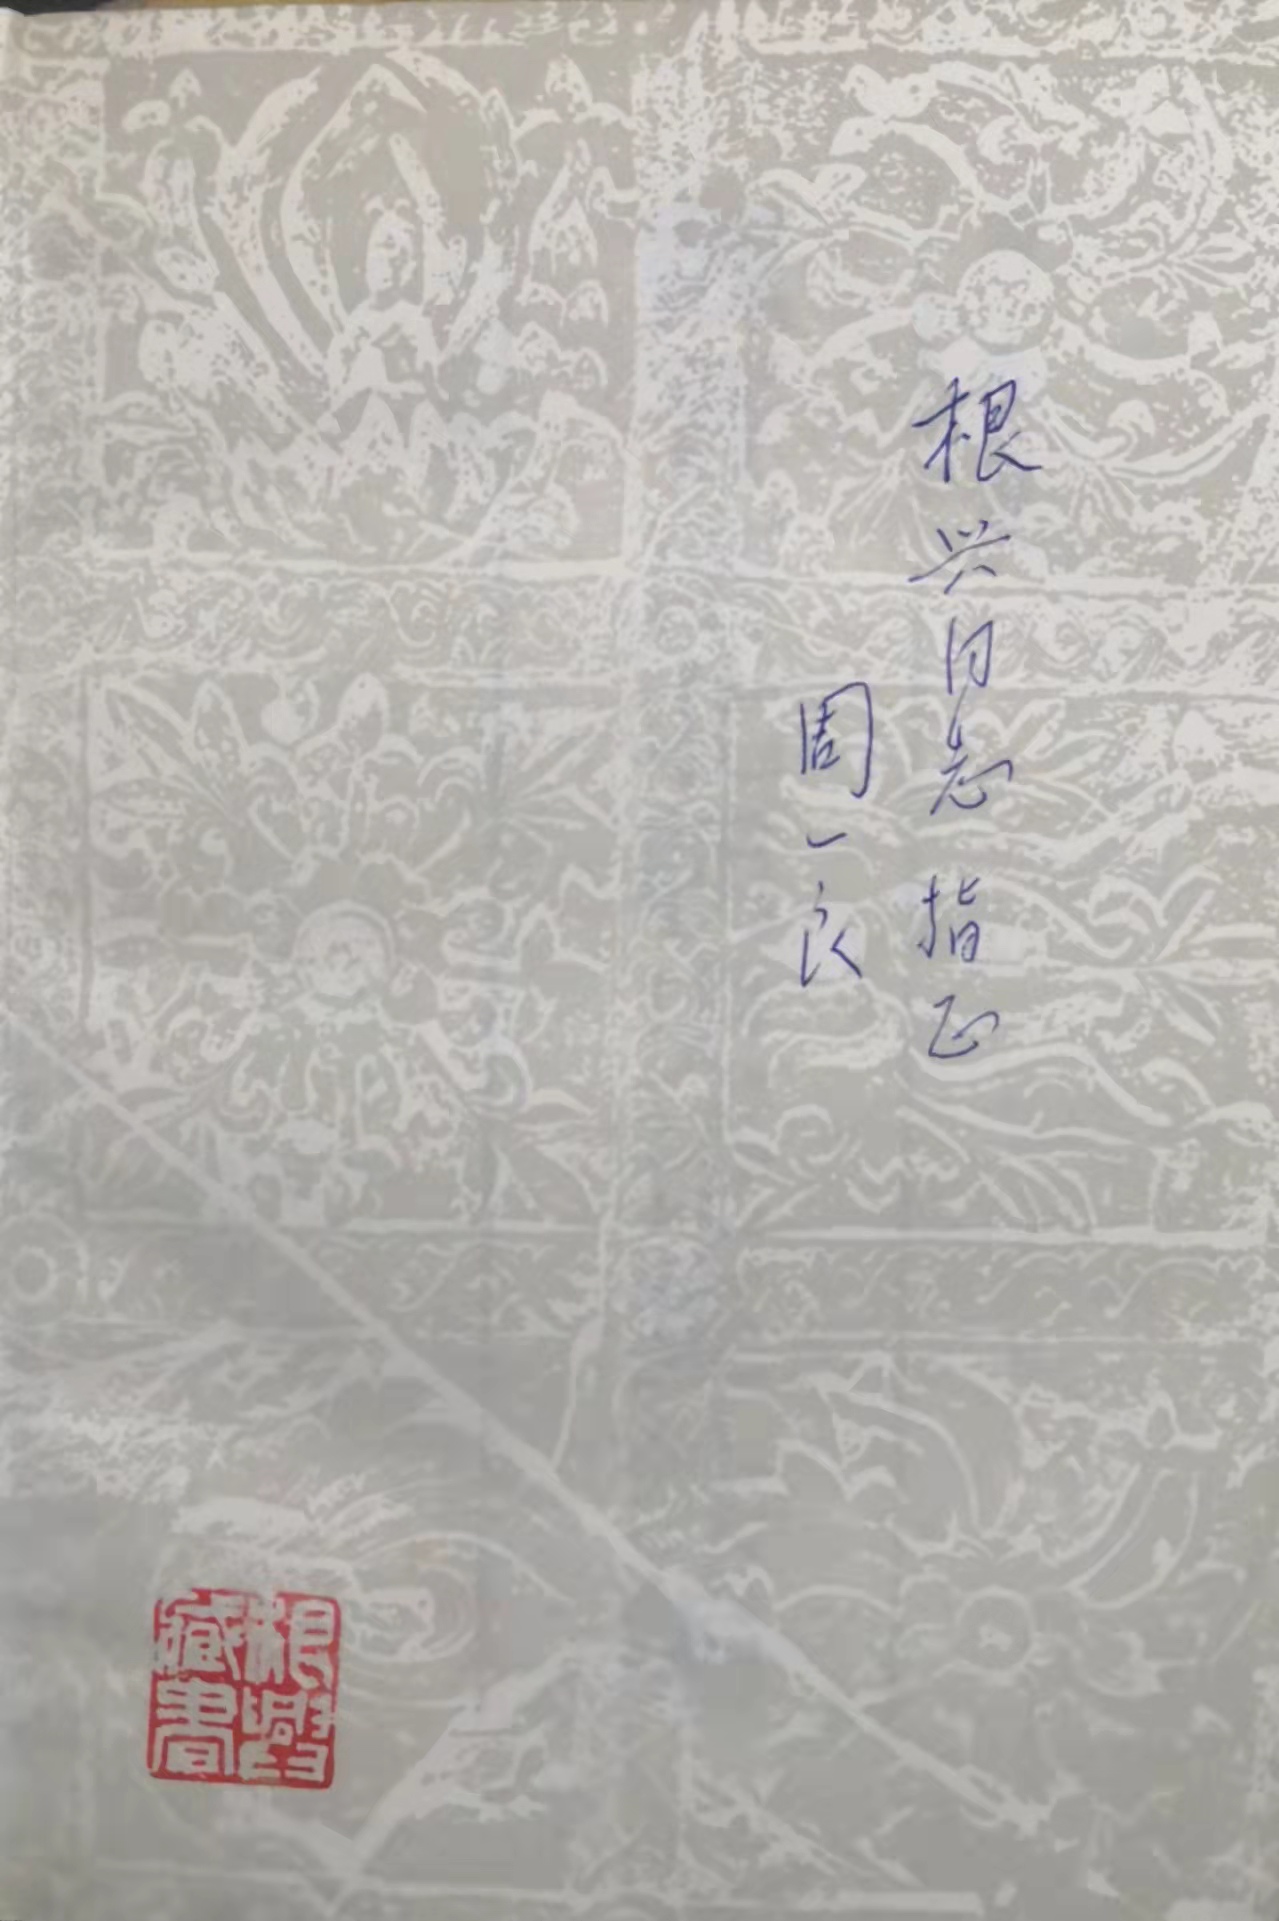 根兴同志 指正
周一良
根興
藏書